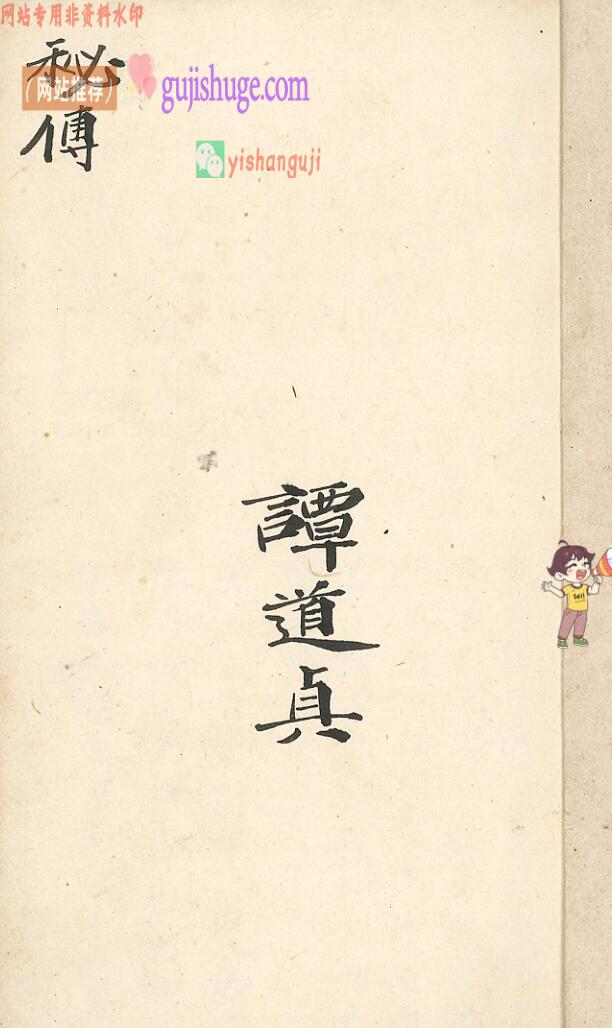 网站专用非资料水印
秘傳
(网站推荐)
gujishuge.com
yishanguji
譚道真
Sell